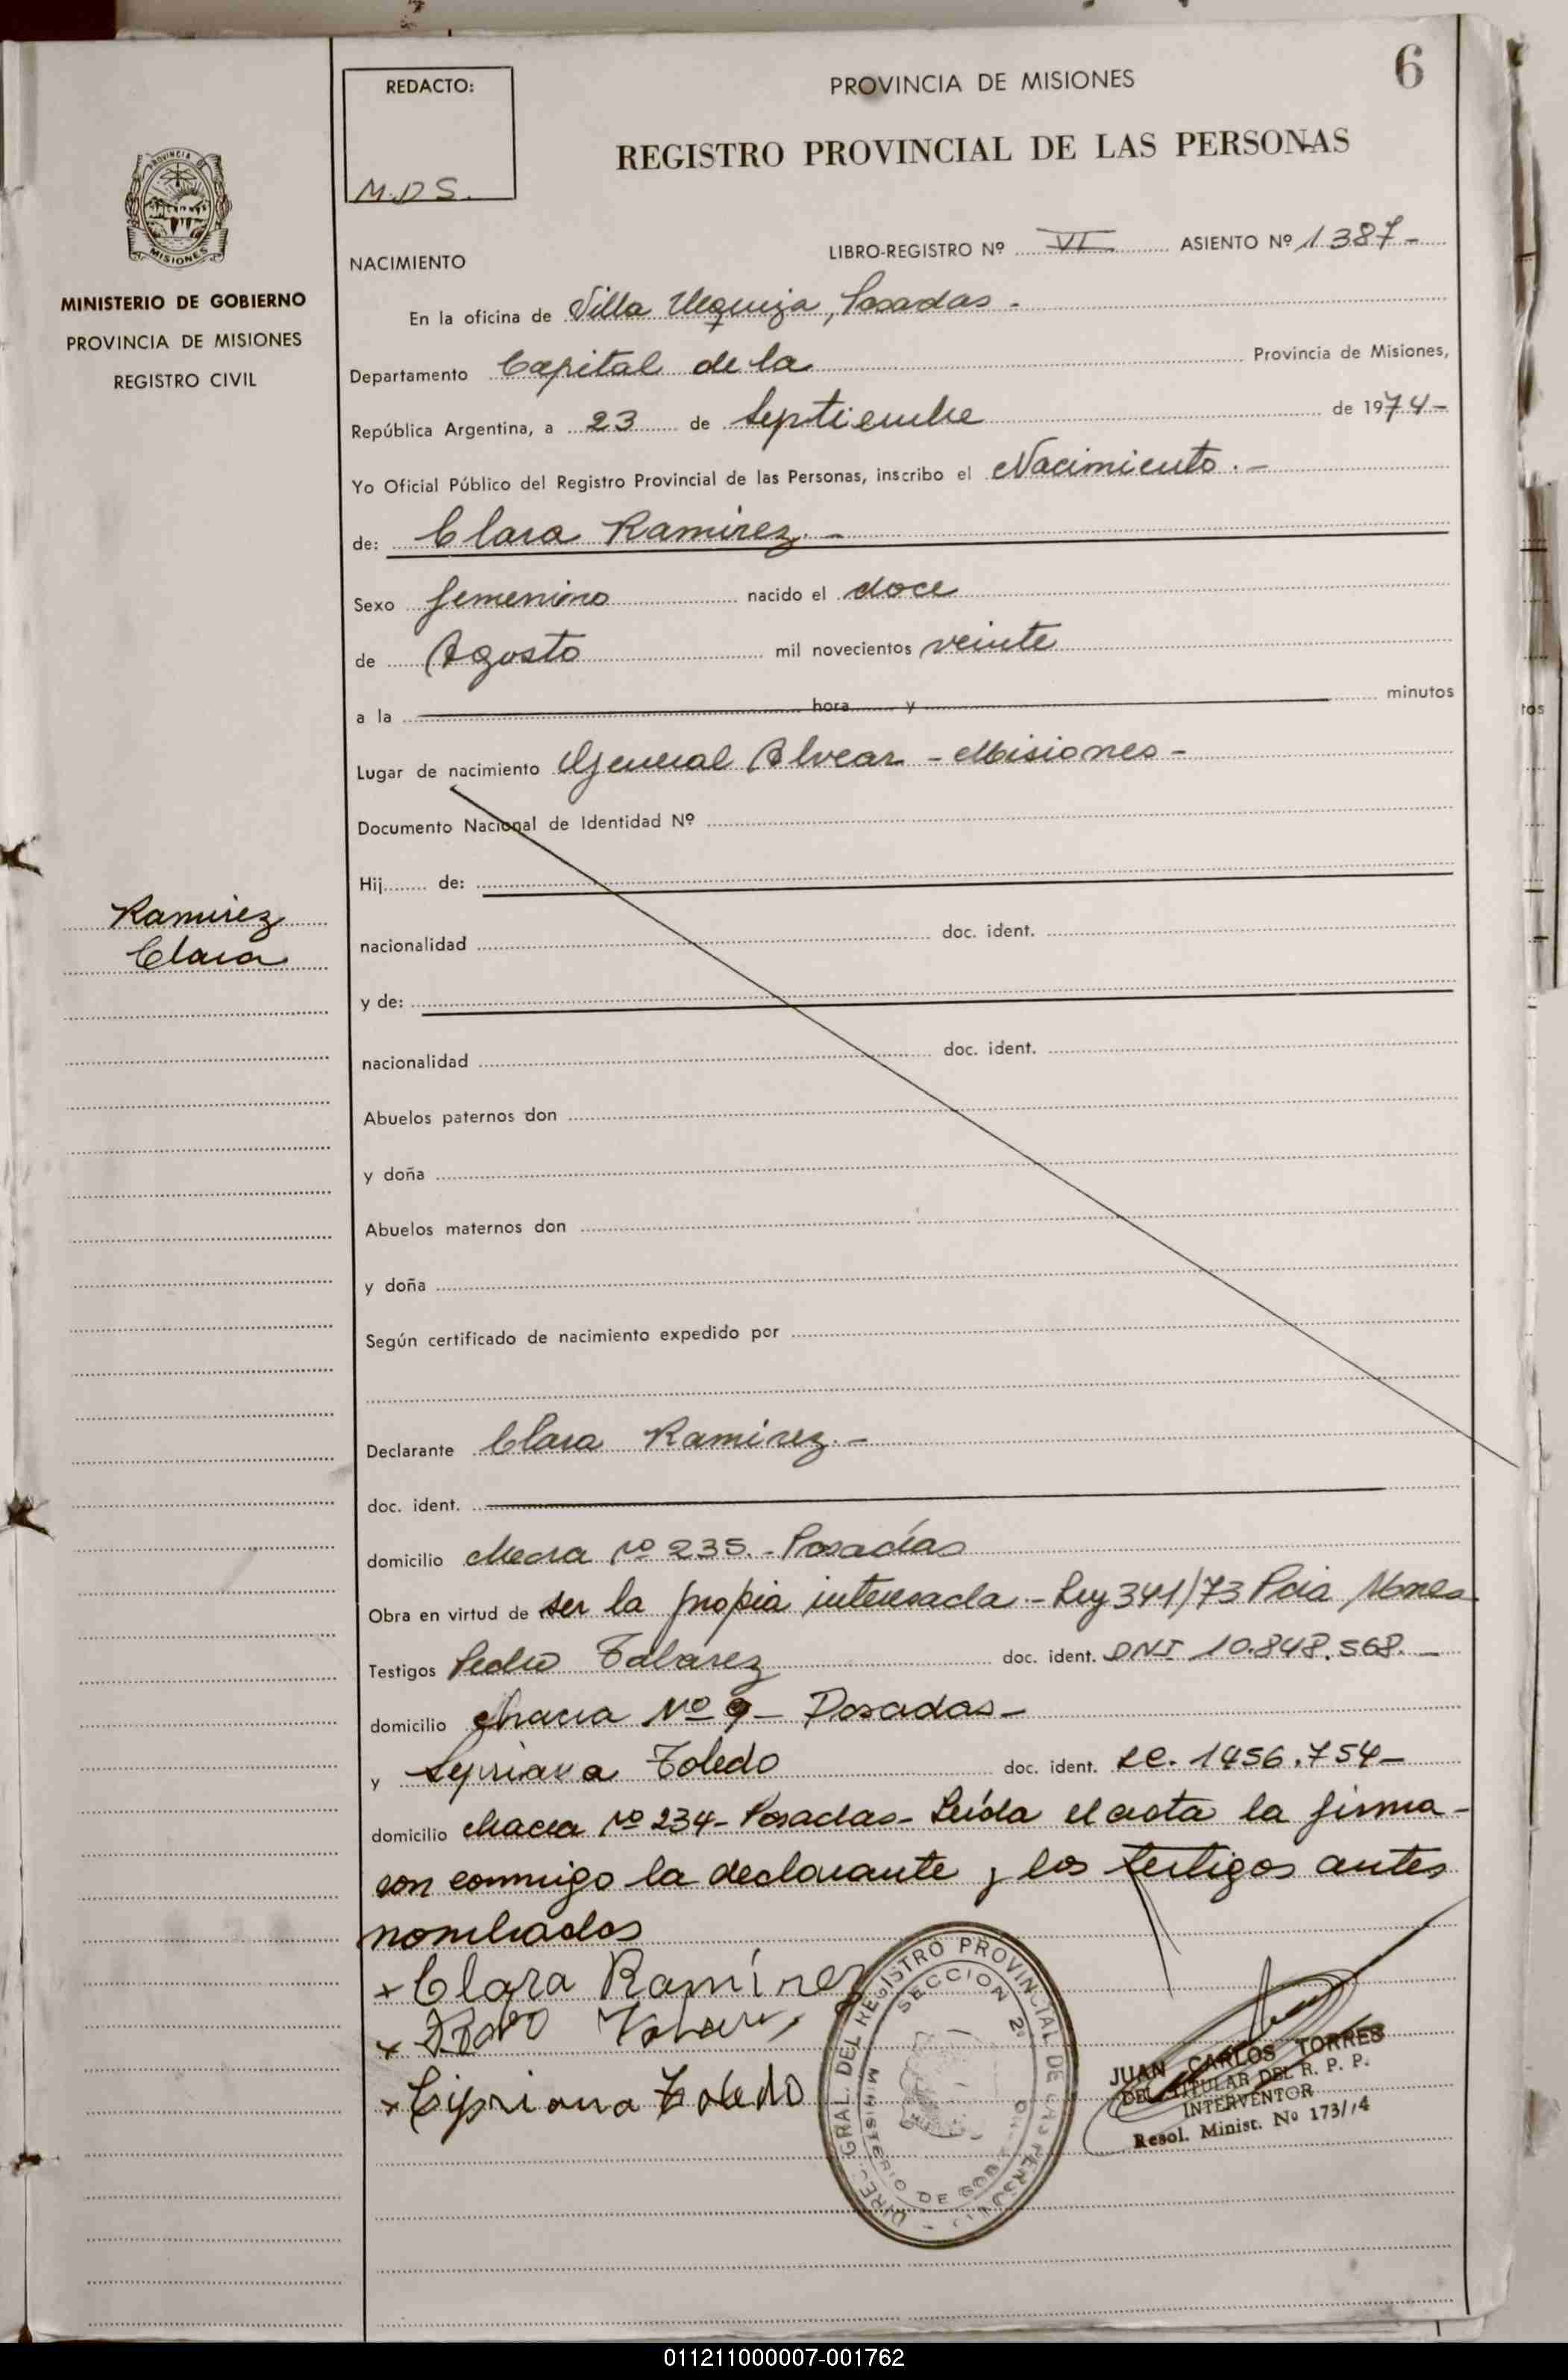 6
REDACTO:
M.D.S.
PROVINCIA DE MISIONES
REGISTRO PROVINCIAL DE LAS PERSONAS
MISIONES
MINISTERIO DE GOBIERNO
PROVINCIA DE MISIONES
REGISTRO CIVIL
LIBRO-REGISTRO Nº VI ASIENTO Nº 1387-
NACIMIENTO
En la oficina de Villa Urquiza, Posadas -
Departamento Capital de la Provincia de Misiones,
República Argentina, a 23 de Septiembre de 1974-
Yo Oficial Público del Registro Provincial de las Personas, inscribo el Nacimiento.-
de: Clara Ramirez.-
Sexo femenino nacido el doce
de Agosto mil novecientos veinte
a la hora y minutos
Lugar de nacimiento General Alvear - Misiones -
Documento Nacional de Identidad Nº
Hij de:
Ramirez
Clara
nacionalidad doc. ident.
y de:
nacionalidad doc. ident.
Abuelos paternos don
y doña
Abuelos maternos don
y doña
Según certificado de nacimiento expedido por
Declarante Clara Ramirez.-
doc. ident.
domicilio Nº 235.- Posadas
Obra en virtud de ser la propia interesada.- Ley 341/73 Pcia
Testigos Pedro doc. ident. DNI 10.848.568.-
domicilio Chacra Nº 9- Posadas-
y Toledo doc. ident. LC. 1456.754-
domicilio Chacra Nº 234- Posadas- Leída el acta la firma-
con conmigo la declarante y los testigos antes
nombrados
x Clara Ramírez
x
x Cipriana Toledo
DIREC. GRAL. DEL REGISTRO PROVINCIAL DE LAS PERSONAS
SECCION 2ª
MINISTERIO DE GOB
JUAN CARLOS TORRES
DEL TITULAR DEL R. P. P.
INTERVENTOR
Resol. Minist. Nº 173/
011211000007-001762